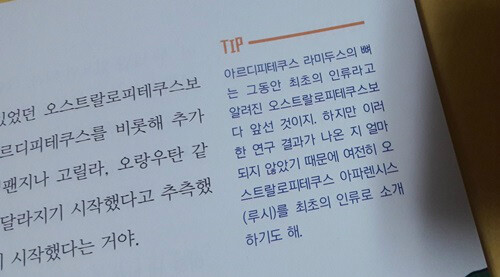 있었던 오스트랄로피테쿠스보
르디피테쿠스를 비롯해 추가
팬지나 고릴라, 오랑우탄 같
달라지기 시작했다고 추측했
시작했다는 거야.
TIP
아르디피테쿠스 라미두스의 뼈
는 그동안 최초의 인류라고
알려진 오스트랄로피테쿠스보
다 앞선 것이지. 하지만 이러
한 연구 결과가 나온 지 얼마
되지 않았기 때문에 여전히 오
스트랄로피테쿠스 아파렌시스
(루시)를 최초의 인류로 소개
하기도 해.